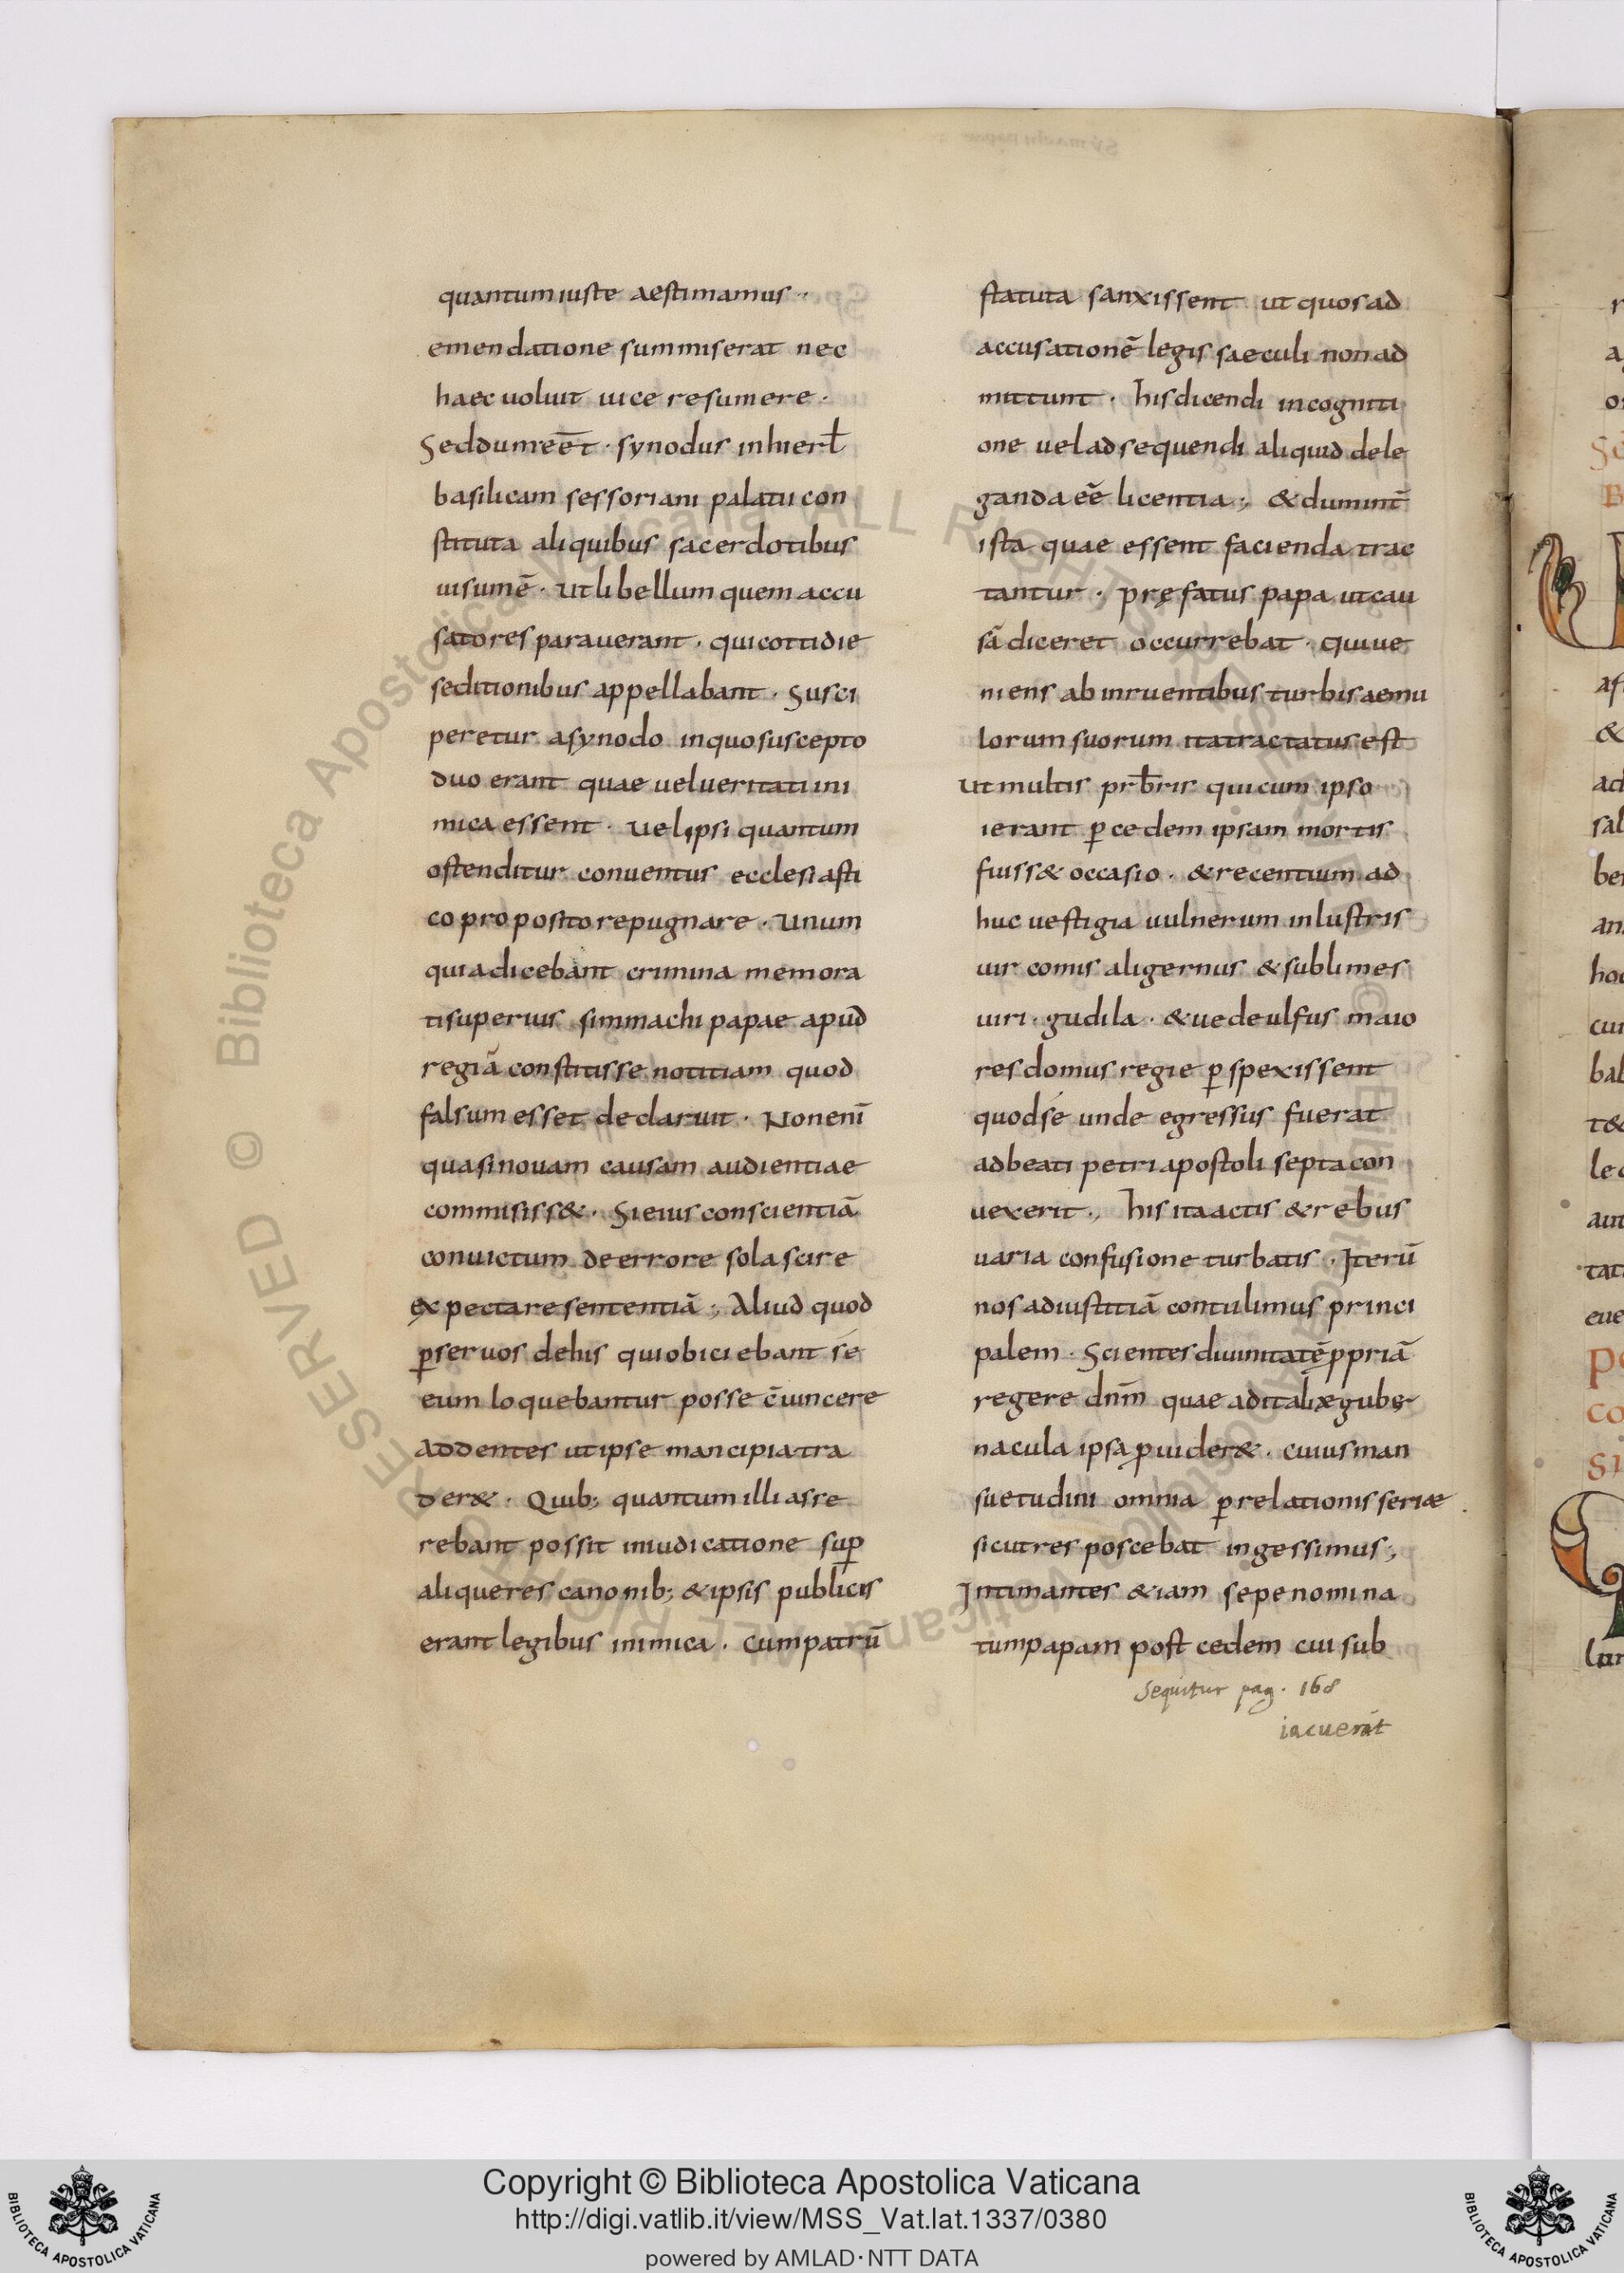 quantum iuste aestimamus ·
emendatione summiserat nec
haec uoluit uice resumere ·
Sed dum eēt · synodus in hierł
basilicam sessoriani palatii con
stituta aliquibus sacerdotibus
uisum ē · ut libellum quem accu
satores parauerant · qui cottidie
seditionibus appellabant · Susci
peretur a synodo in quo suscepto
duo erant quae uel ueritati ini
mica essent · uel ipsi quantum
ostenditur conuentus ecclesiasti
co proposito repugnare · Unum
quia dicebant crimina memora
ti superius simmachi papae apud
regiā constitisse notitiam quod
falsum esset declaruit · Non enī
quasi nouam causam audientiae
commisiss& · Si eius conscientiā
conuictum de errore sola scire
expectare sententiā ; Aliud quod
ꝑ seruos de his qui obiciebant se
eum loquebantur posse c̄uincere
addentes ut ipse mancipia tra
der& · Quib; quantum illi asse
rebant possit in iudicatione suꝑ
alique res canonib; & ipsis publicis
erant legibus inimica · Cum patrū
statuta sanxissent ut quos ad
accusationē legis saeculi non ad
mittunt · his dicendi in cogniti
one uel adsequendi aliquid dele
ganda eē licentia ; & dum int̄
ista quae essent facienda trac
tantur · pręfatus papa ut cau
sā diceret occurrebat · qui ue
niens ab inruentibus turbis aemu
lorum suorum ita tractatus est
ut multis pr̄bris qui cum ipso
ierant ꝑ cedem ipsam mortis
fuiss& occasio · & recentium ad
huc uestigia uulnerum inlustris
uir comis aligernus & sublimes
uiri · gudila · & uedeulfus maio
res domus regie ꝑspexissent
quod se unde egressus fuerat
ad beati petri apostoli septa con
uexerit ., his ita actis & rebus
uaria confusione turbatis · Iterū
nos ad iustitiā contulimus princi
palem · Scientes diuinitatē ꝓpriā
regere dnm̄ quae ad italiæ guber
nacula ipsa ꝓuider& · cuius man
suetudini omnia ꝑ relationis seriæ
sicut res poscebat ingessimus ;
Intimantes & iam sepe nomina
tum papam post cedem cui sub
Sequitur pag. 168
iacuerat
Copyright © Biblioteca Apostolica Vaticana
http://digi.vatlib.it/view/MSS_Vat.lat.1337/0380
powered by AMLAD·NTT DATA